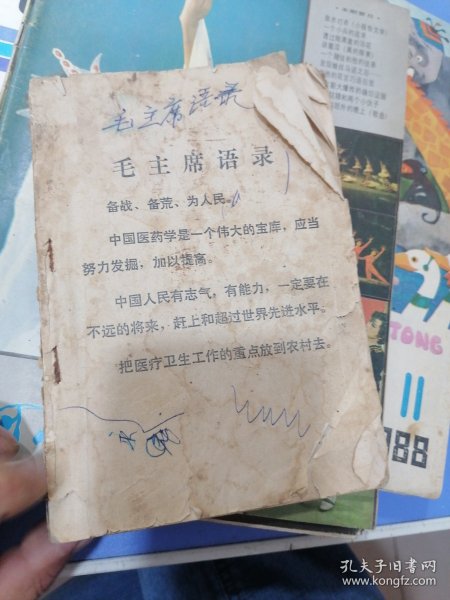 毛主席语录
毛主席语录
备战、备荒、为人民。
中国医药学是一个伟大的宝库，应当
努力发掘，加以提高。
中国人民有志气，有能力，一定要在
不远的将来，赶上和超过世界先进水平。
把医疗卫生工作的重点放到农村去。
TONG
11
988
孔夫子旧书网
www.kongfz.com